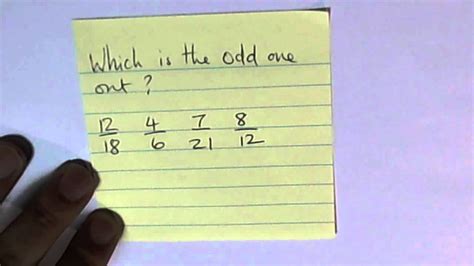 Which is the odd one
out?
12/18 4/6 7/21 8/12